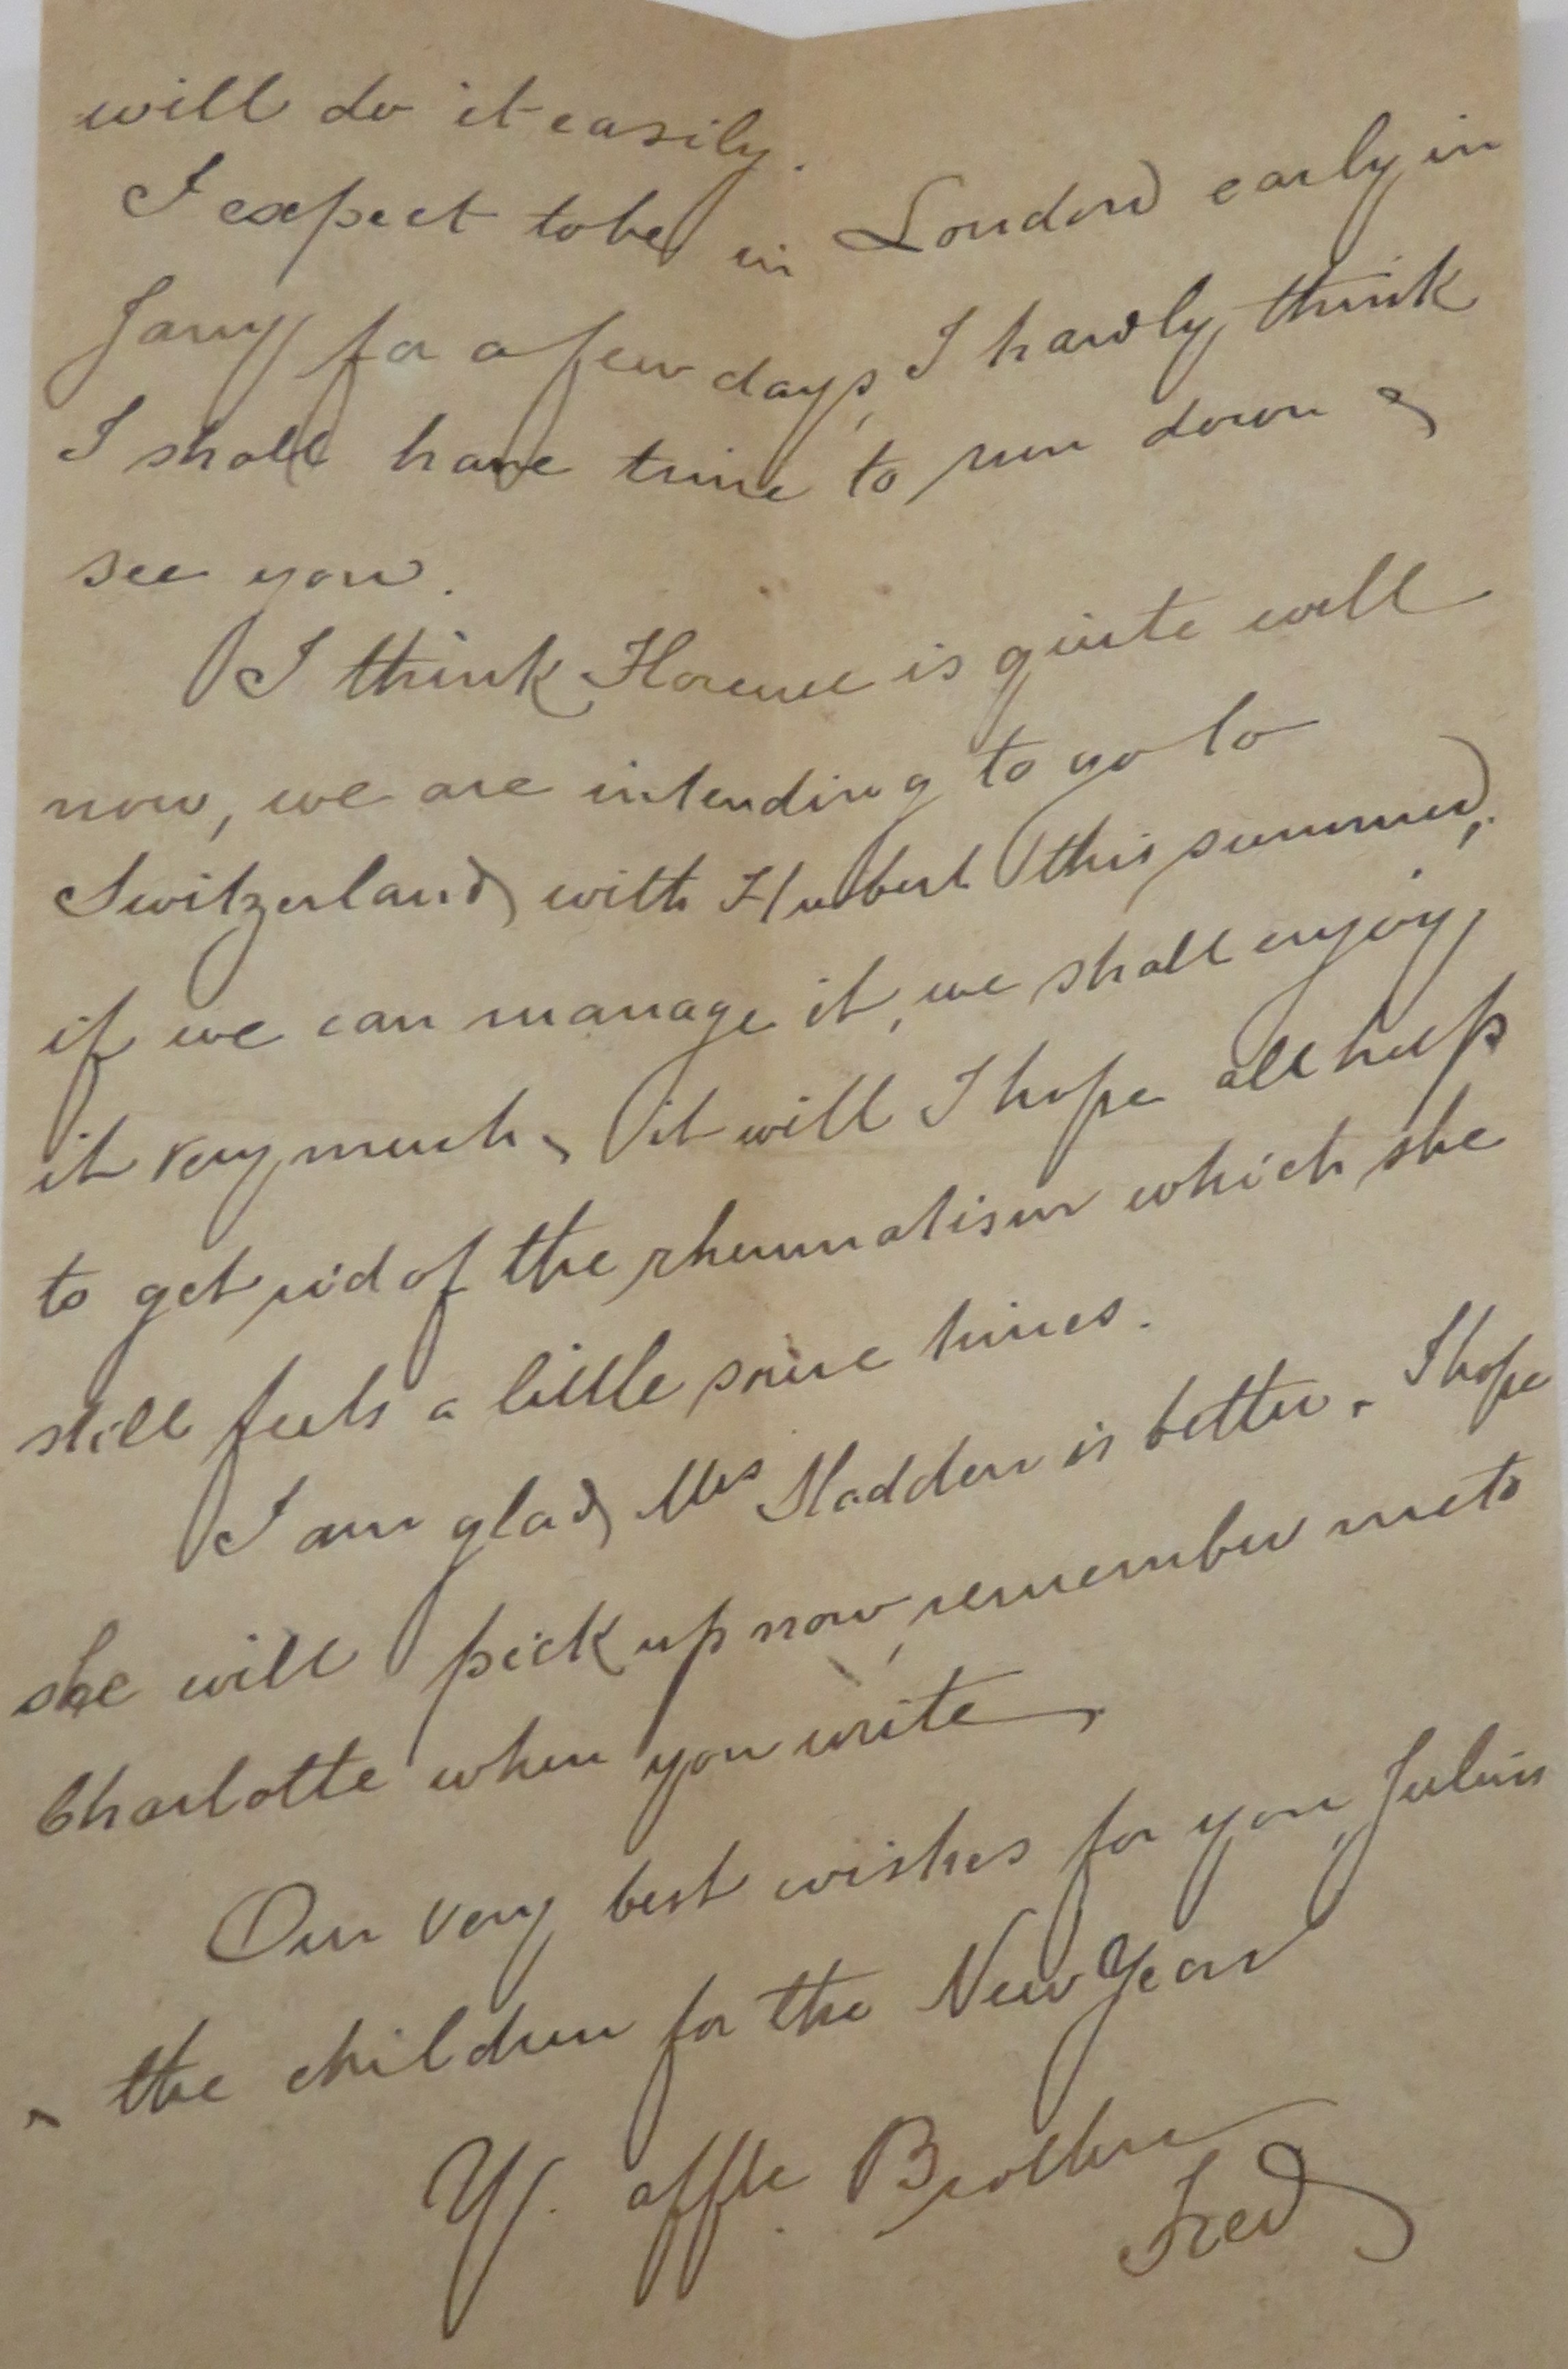 will do it easily.
I expect to be in London early in
Jany for a few days, I hardly think
I shall have time to run down &
see you.
I think Florence is quite well
now, we are intending to go to
Switzerland with Hubert this summer,
if we can manage it, we shall enjoy
it very much, it will I hope all help
to get rid of the rheumatism which she
still feels a little some times.
I am glad Mrs Madden is better. I hope
she will pick up now, remember me to
Charlotte when you write.
Our very best wishes for you, Julius
& the children for the New Year
Yr. affte Brother
Fred